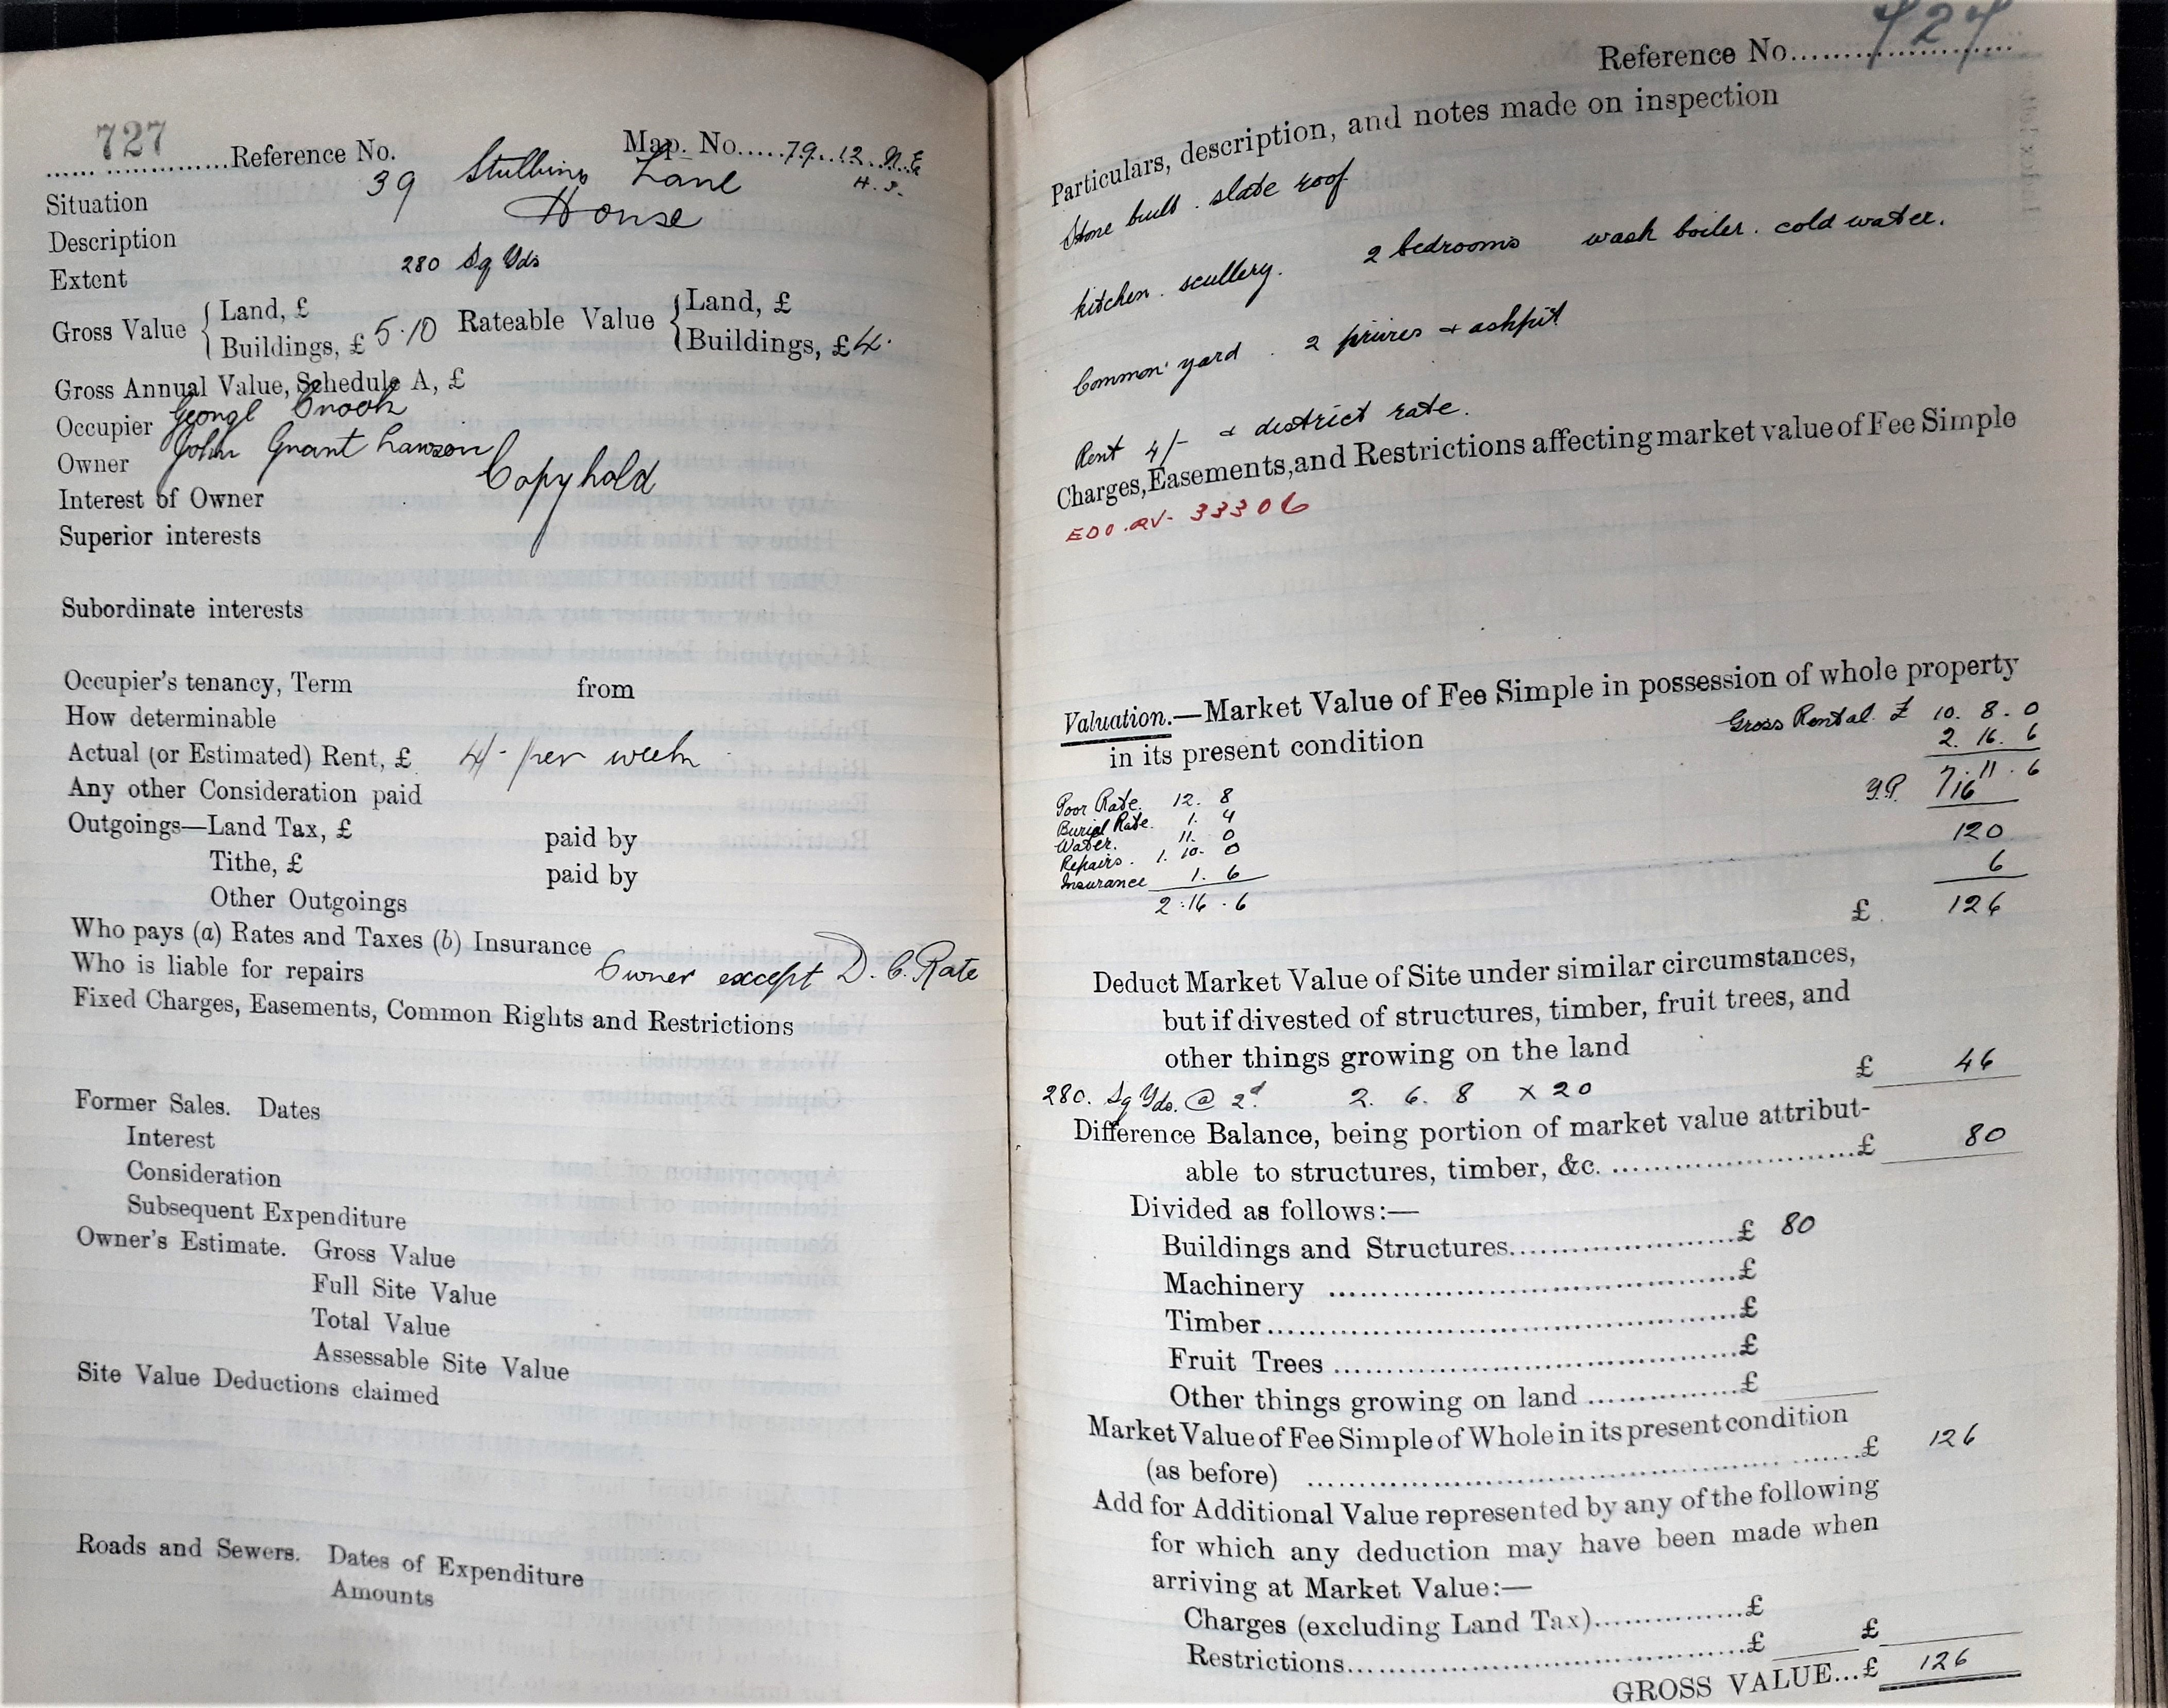 727
Reference No. Map. No.....79..12..N.E
H. 3.
Situation 39 Stubbing Lane
Description House
Extent 280 Sq Yds
Gross Value { Land, £ Rateable Value { Land, £
Buildings, £ 5.10 Buildings, £ 4.
Gross Annual Value, Schedule A, £
Occupier George Crook
Owner John Grant Lawson
Interest of Owner Copyhold
Superior interests
Subordinate interests
Occupier's tenancy, Term from
How determinable
Actual (or Estimated) Rent, £ 4/- per week
Any other Consideration paid
Outgoings—Land Tax, £ paid by
Tithe, £ paid by
Other Outgoings
Who pays (a) Rates and Taxes (b) Insurance
Who is liable for repairs Owner except D. C. Rate
Fixed Charges, Easements, Common Rights and Restrictions
Former Sales. Dates
Interest
Consideration
Subsequent Expenditure
Owner's Estimate. Gross Value
Full Site Value
Total Value
Assessable Site Value
Site Value Deductions claimed
Roads and Sewers. Dates of Expenditure
Amounts
Reference No. 727
Particulars, description, and notes made on inspection
Stone built . slate roof
kitchen . scullery. 2 bedrooms wash boiler . cold water.
Common yard . 2 privies + ashpit
Rent 4/- + district rate.
Charges, Easements, and Restrictions affecting market value of Fee Simple
EDO. RV- 33306
Valuation.—Market Value of Fee Simple in possession of whole property
in its present condition
Gross Rental £ 10. 8. 0
2. 16. 6
7. 11. 6
Y.P. 16
120
6
£ 126
Poor Rate. 12. 8
Burial Rate. 1. 4
Water. 11. 0
Repairs. 1. 10. 0
Insurance 1. 6
2. 16. 6
Deduct Market Value of Site under similar circumstances,
but if divested of structures, timber, fruit trees, and
other things growing on the land £ 46
280. Sq Yds. @ 2d 2. 6. 8 x 20
Difference Balance, being portion of market value attribut-
able to structures, timber, &c. £ 80
Divided as follows:—
Buildings and Structures £ 80
Machinery £
Timber £
Fruit Trees £
Other things growing on land £
Market Value of Fee Simple of Whole in its present condition
(as before) £ 126
Add for Additional Value represented by any of the following
for which any deduction may have been made when
arriving at Market Value:—
Charges (excluding Land Tax) £
Restrictions £ £
GROSS VALUE...£ 126